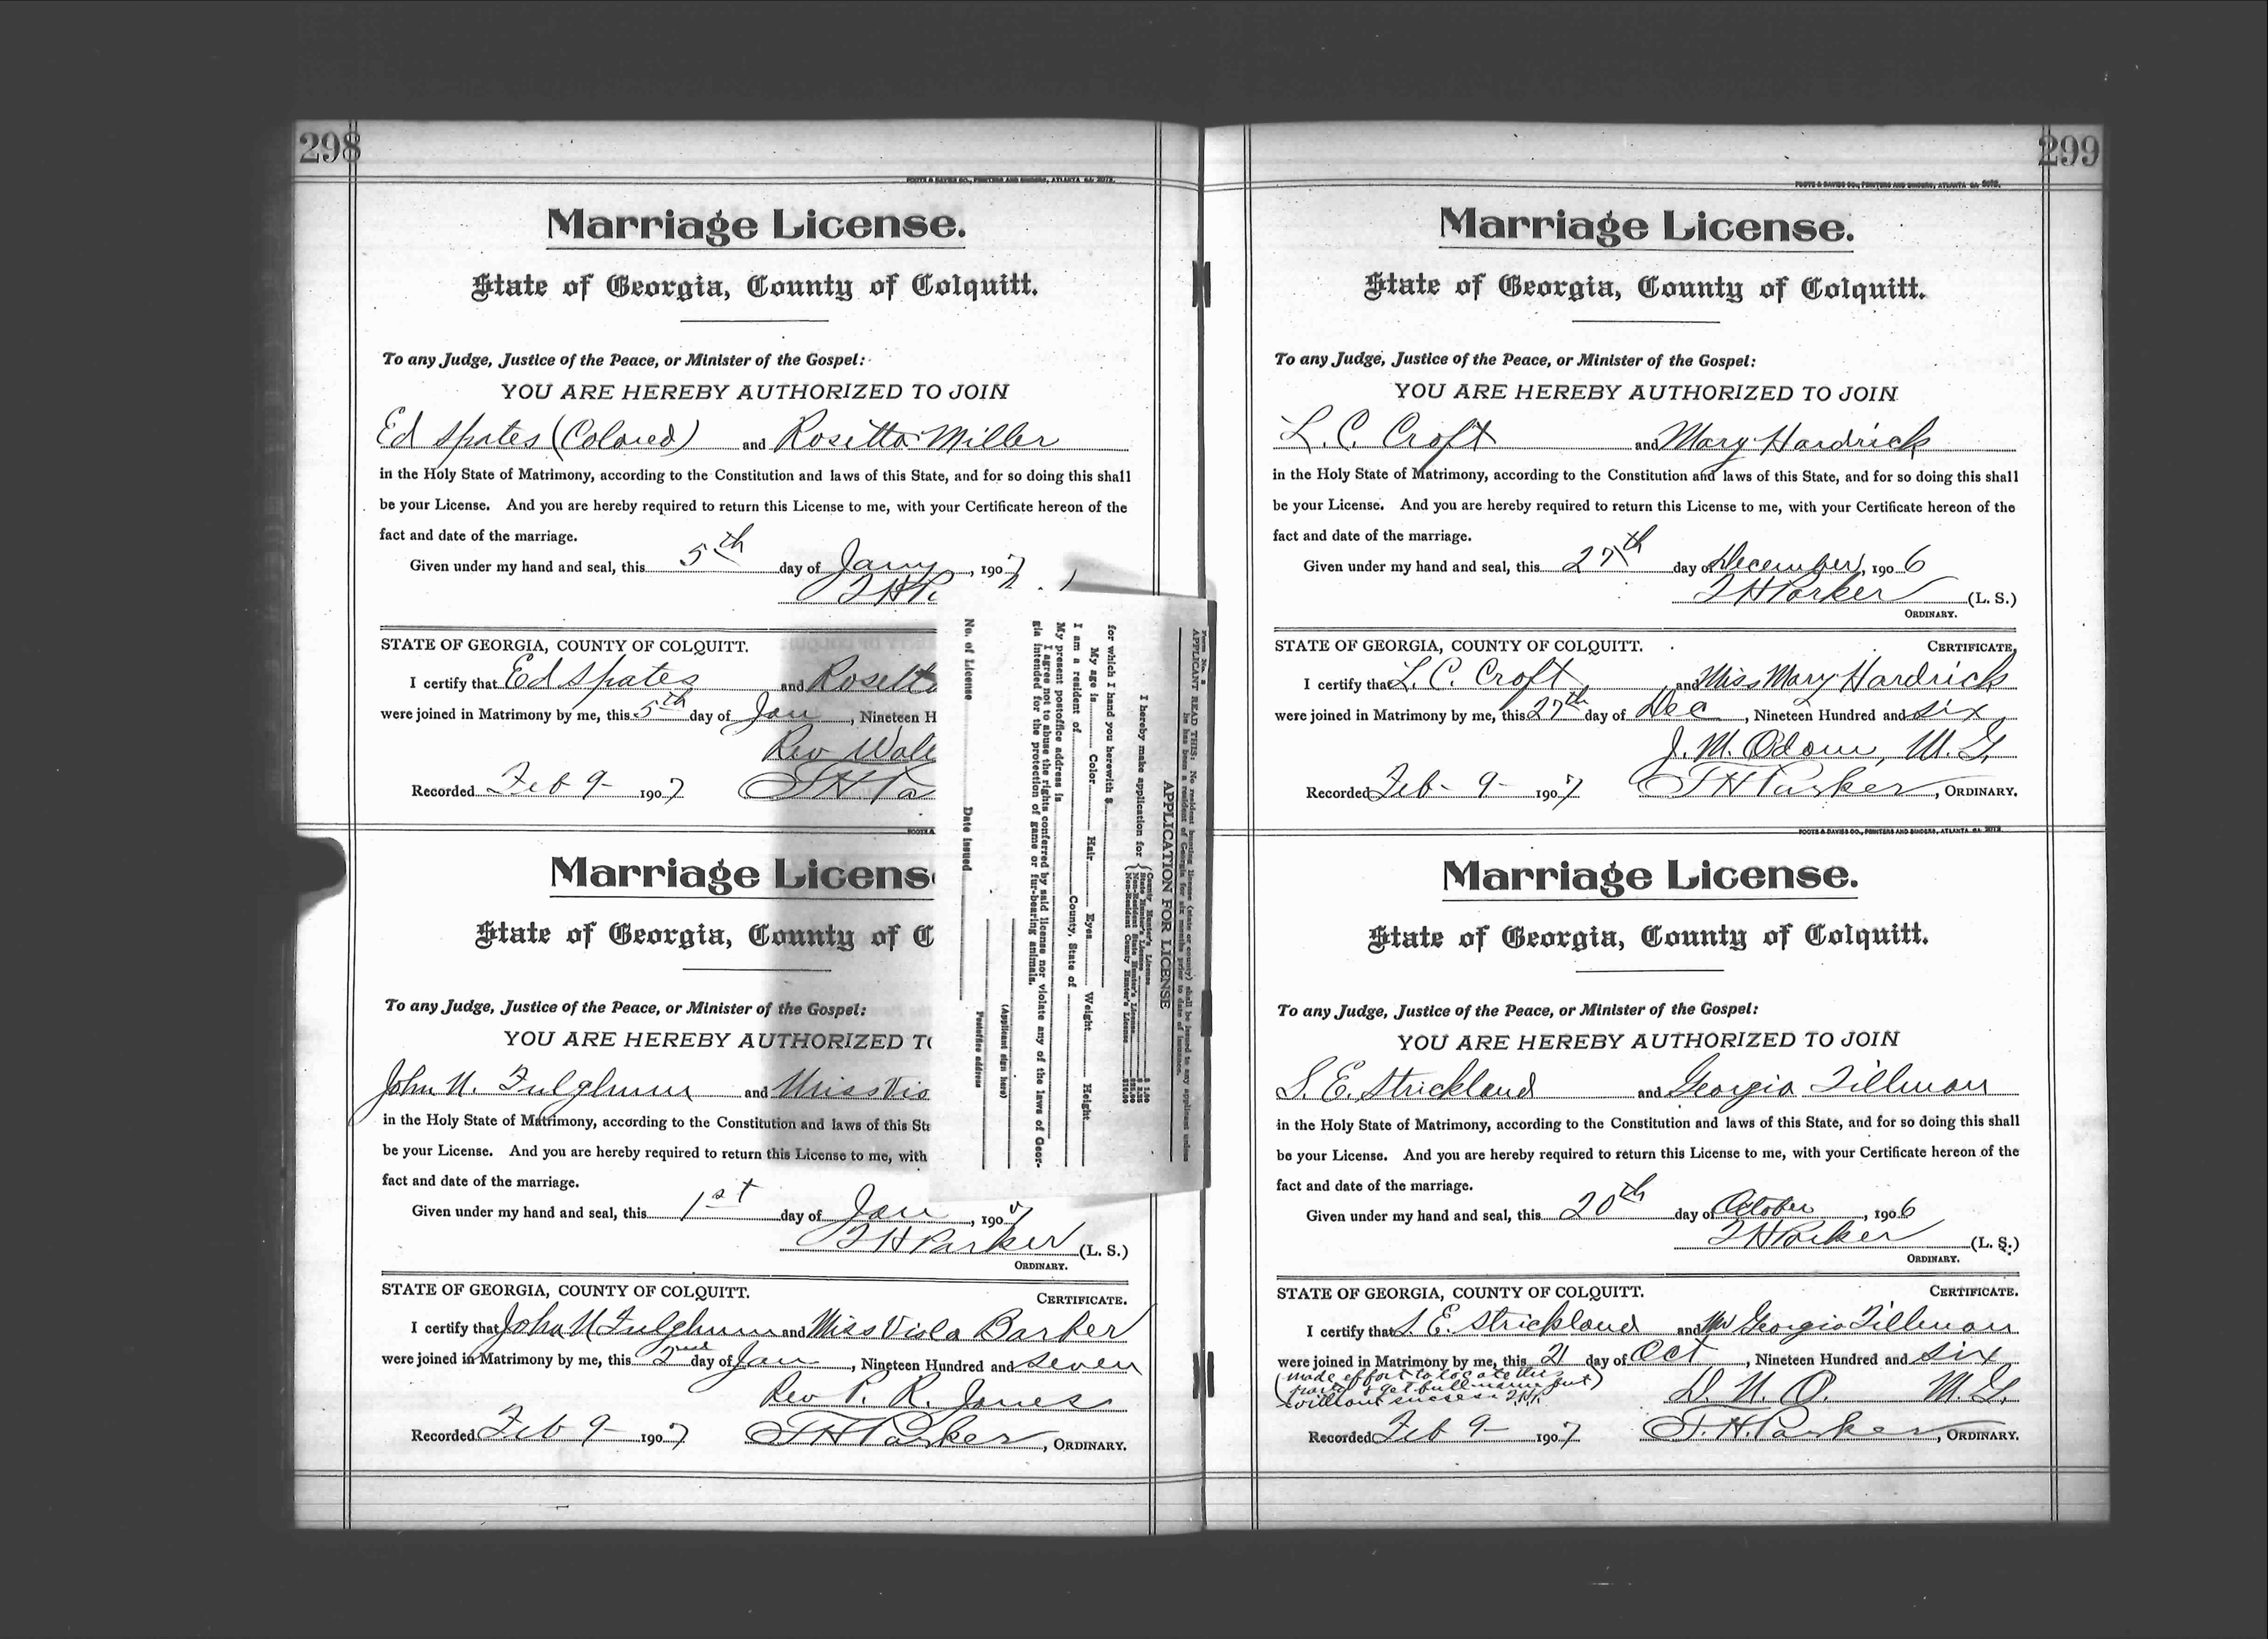 298
FOOTE & DAVIES CO., PRINTERS AND BINDERS, ATLANTA GA. 2072.
Marriage License.
State of Georgia, County of Colquitt.
To any Judge, Justice of the Peace, or Minister of the Gospel:
YOU ARE HEREBY AUTHORIZED TO JOIN
Ed Spates (Colored) and Rosetta Miller
in the Holy State of Matrimony, according to the Constitution and laws of this State, and for so doing this shall
be your License. And you are hereby required to return this License to me, with your Certificate hereon of the
fact and date of the marriage.
Given under my hand and seal, this 5th day of Jany, 1907
T H P.
STATE OF GEORGIA, COUNTY OF COLQUITT.
I certify that Ed Spates and Rosetta
were joined in Matrimony by me, this 5th day of Jan, Nineteen H
Rev Wal
Recorded Feb 9- 1907 T. H. Pa
Marriage Licens
State of Georgia, County of C
To any Judge, Justice of the Peace, or Minister of the Gospel:
YOU ARE HEREBY AUTHORIZED TO
John N. Fulghum and Miss Vio
in the Holy State of Matrimony, according to the Constitution and laws of this Sta
be your License. And you are hereby required to return this License to me, with
fact and date of the marriage.
Given under my hand and seal, this 1st day of Jan, 1907
T H Parker (L. S.)
ORDINARY.
STATE OF GEORGIA, COUNTY OF COLQUITT. CERTIFICATE.
I certify that John N Fulghum and Miss Viola Barker
were joined in Matrimony by me, this 2nd day of Jan, Nineteen Hundred and seven
Rev P. R. Jones
Recorded Feb 9- 1907 T H Parker, ORDINARY.
Form No. 2
APPLICANT READ THIS: No resident hunting license (state or county) shall be issued to any applicant unless
he has been a resident of Georgia for six months prior to date of issuance.
APPLICATION FOR LICENSE
I hereby make application for
County Hunter's License $ 1.00
State Hunter's License
Non-Resident State Hunter's License
Non-Resident County Hunter's License
for which I hand you herewith $
My age is Color Hair Eyes Weight Height
I am a resident of County, State of
My present postoffice address is
I agree not to abuse the rights conferred by said license nor violate any of the laws of Geor-
gia intended for the protection of game or fur-bearing animals.
(Applicant sign here)
Postoffice address
No. of License Date issued
299
FOOTE & DAVIES CO., PRINTERS AND BINDERS, ATLANTA GA. 2072.
Marriage License.
State of Georgia, County of Colquitt.
To any Judge, Justice of the Peace, or Minister of the Gospel:
YOU ARE HEREBY AUTHORIZED TO JOIN
L. C. Croft and Mary Hardrick
in the Holy State of Matrimony, according to the Constitution and laws of this State, and for so doing this shall
be your License. And you are hereby required to return this License to me, with your Certificate hereon of the
fact and date of the marriage.
Given under my hand and seal, this 27th day of December, 1906
T H Parker (L. S.)
ORDINARY.
STATE OF GEORGIA, COUNTY OF COLQUITT. CERTIFICATE,
I certify that L. C. Croft and Miss Mary Hardrick
were joined in Matrimony by me, this 27th day of Dec, Nineteen Hundred and six
J. M. Odom, M. G.
Recorded Feb- 9- 1907 T H Parker, ORDINARY.
FOOTE & DAVIES CO., PRINTERS AND BINDERS, ATLANTA GA. 2072.
Marriage License.
State of Georgia, County of Colquitt.
To any Judge, Justice of the Peace, or Minister of the Gospel:
YOU ARE HEREBY AUTHORIZED TO JOIN
S. E. Strickland and Georgia Tillman
in the Holy State of Matrimony, according to the Constitution and laws of this State, and for so doing this shall
be your License. And you are hereby required to return this License to me, with your Certificate hereon of the
fact and date of the marriage.
Given under my hand and seal, this 20th day of October, 1906
T H Parker (L. S.)
ORDINARY.
STATE OF GEORGIA, COUNTY OF COLQUITT. CERTIFICATE.
I certify that S. E. Strickland and Georgia Tillman
were joined in Matrimony by me, this 21 day of Oct, Nineteen Hundred and six
(made effort to locate this
party & get full name but)
without success T.H.P. D. N. O. M. G.
Recorded Feb 9- 1907 T. H. Parker, ORDINARY.